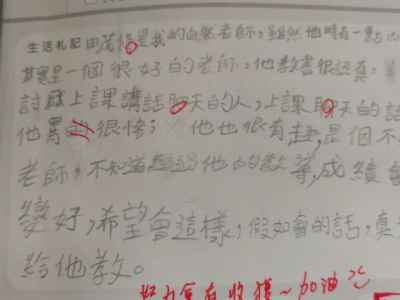 生活札記 由 是我的自然老師,雖然他時有一點
其實是一個很好的老師,他教書很認真,
討厭上課講話聊天的人,上課聊天的話
他罵 很慘;他也很有趣,是個不
老師,不知道 他的教 ,成績會
變好,希望會這樣,假如會的話,真
給他教。
努力會有收獲~加油